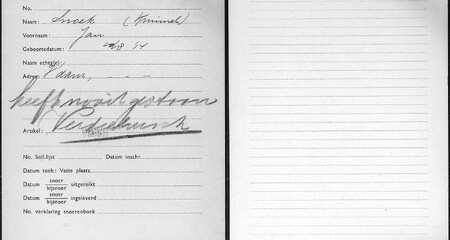 No:
Naam: Snoek (Kruimel)
Voornaam: Jan
Geboortedatum: 20/8 94
Naam echtg(e):
Adres: V'dam,
heeft nooit gestaan
Artikel:
No. Soll.lijst Datum inschr.
Datum toek: Vaste plaats.
Datum snoer bijsnoer uitgereikt
Datum snoer bijsnoer ingeleverd
No. verklaring snoerenboek: